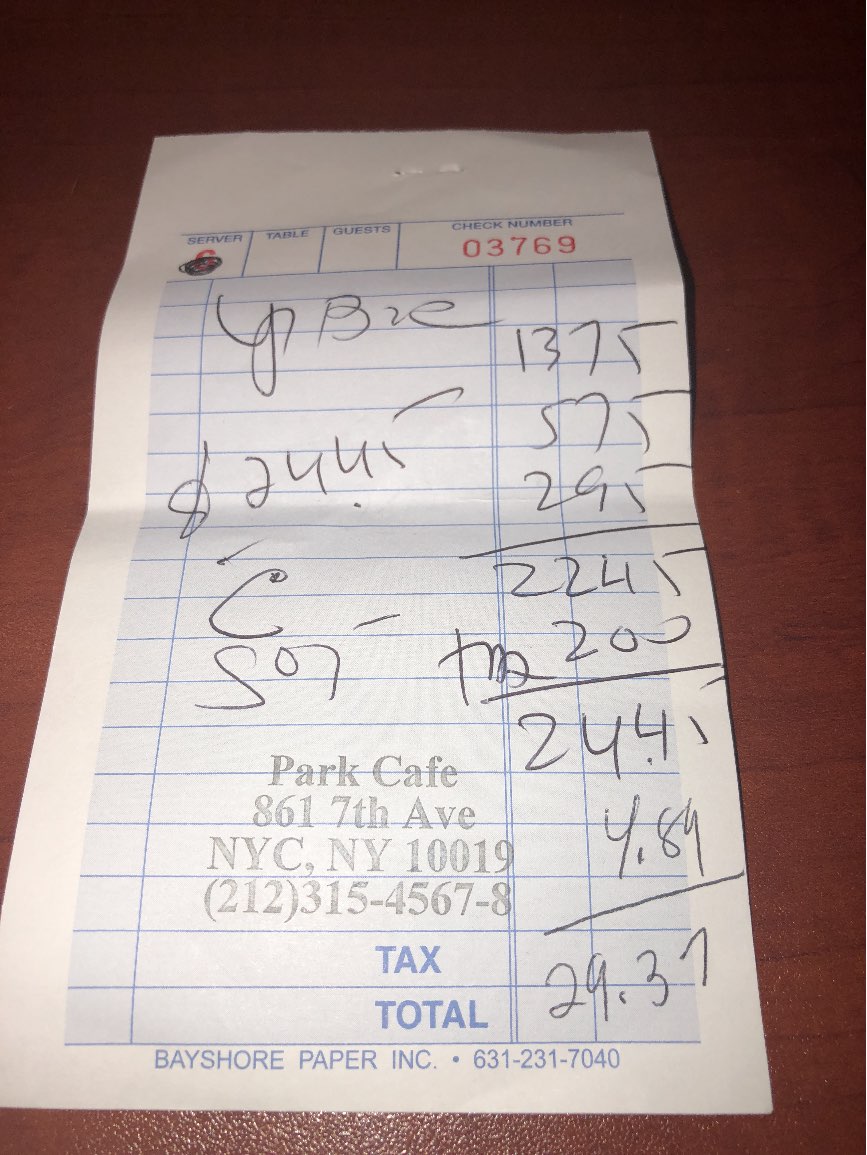 SERVER TABLE GUESTS CHECK NUMBER
03769
1375
575
$24.45
295
2245
C
tax 200
507
24.45
Park Cafe
861 7th Ave
4.89
NYC, NY 10019
(212)315-4567-8
TAX
29.37
TOTAL
BAYSHORE PAPER INC. • 631-231-7040